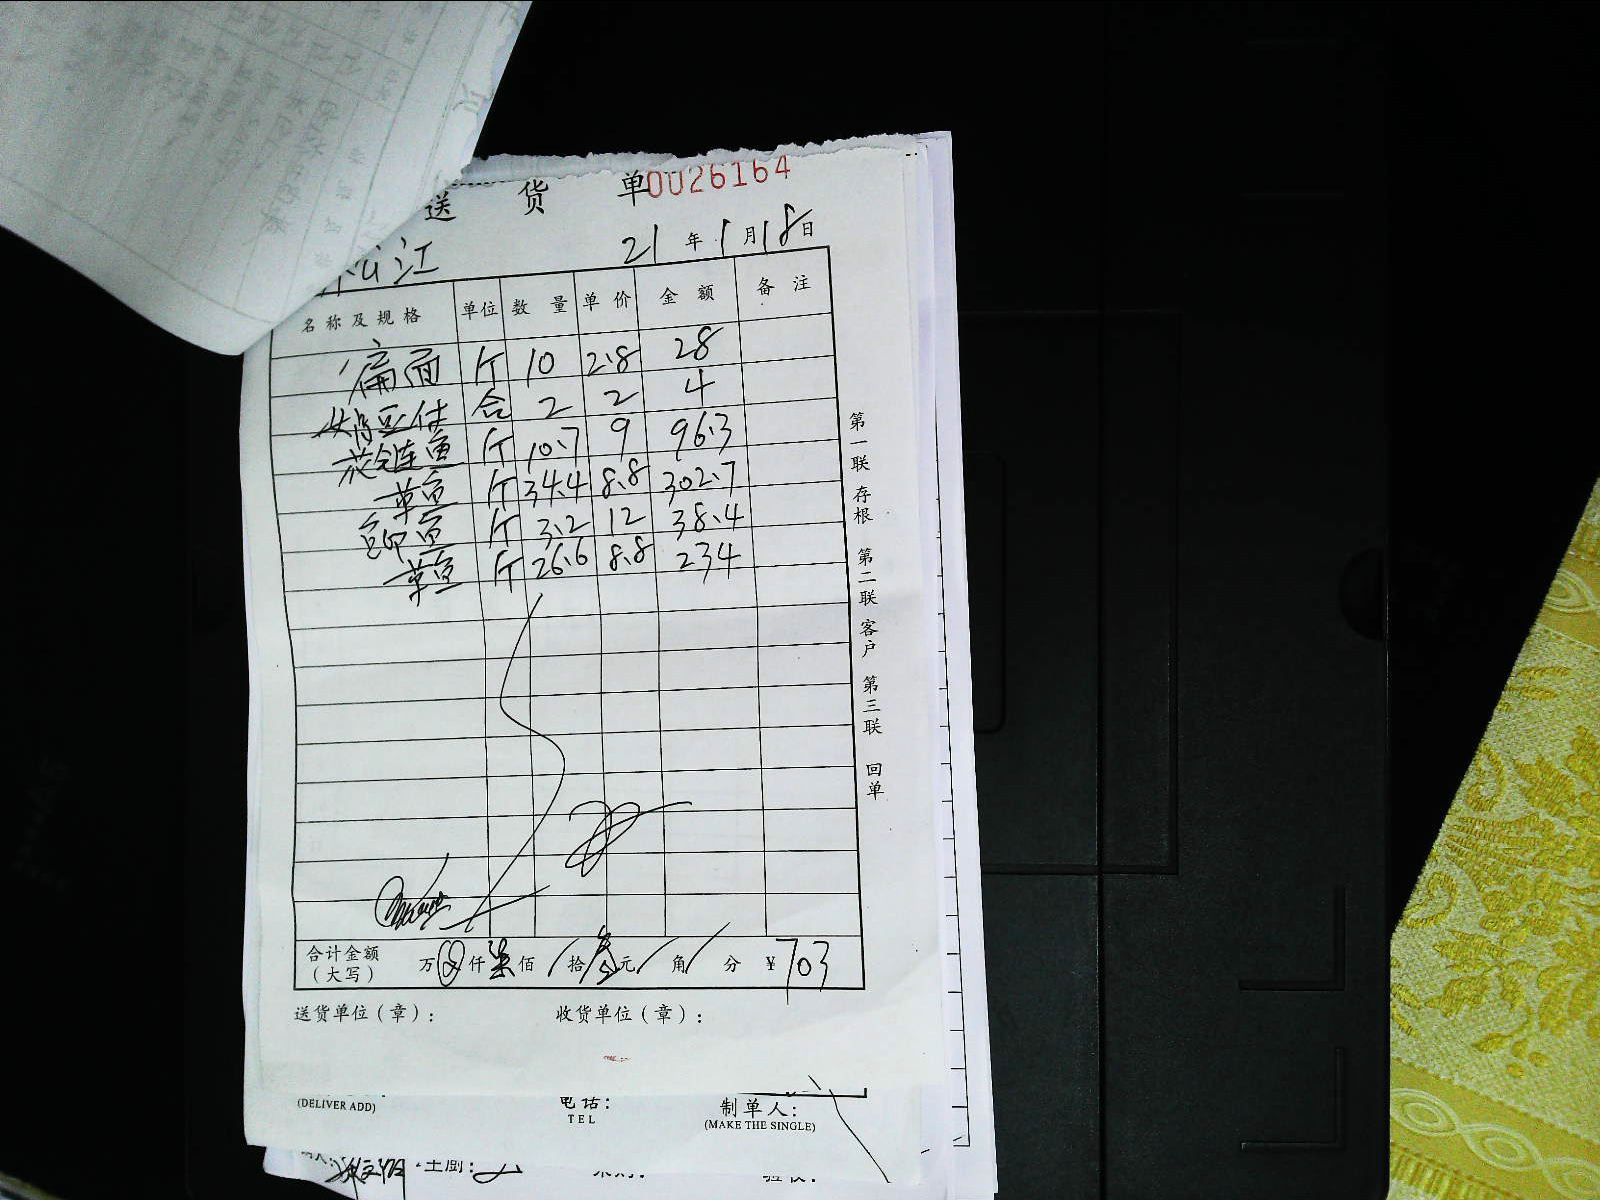 送 货 单 0026164
松江 21 年 1 月 18 日
名称及规格 单位 数量 单价 金额 备注
扁面 斤 10 2.8 28
合 2 2 4
花鲢鱼 斤 10.7 9 96.3
草鱼 斤 34.4 8.8 302.7
鱼 斤 3.2 12 38.4
草鱼 斤 26.6 8.8 234
合计金额（大写） 万 仟 柒 佰 / 拾 叁 元 / 角 / 分 ¥ 703
送货单位（章）： 收货单位（章）：
第一联 存根 第二联 客户 第三联 回单
(DELIVER ADD)
电话：
TEL
制单人：
(MAKE THE SINGLE)